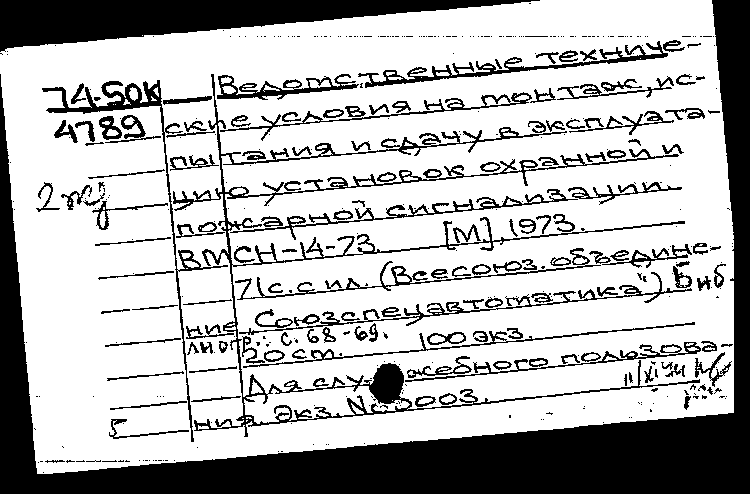 74-50К Ведомственные техниче-
4789 ские условия на монтаж, ис-
пытания и сдачу в эксплуата-
цию установок охранной и
пожарной сигнализации.
ВМСН-14-73. [М], 1973.
71с. с ил. (Всесоюз. объедине-
ние „Союзспецавтоматика"). Биб-
лиогр.: с. 68-69.
20 см. 100 экз.
Для служебного пользова-
5 ния. Экз. № 0003.